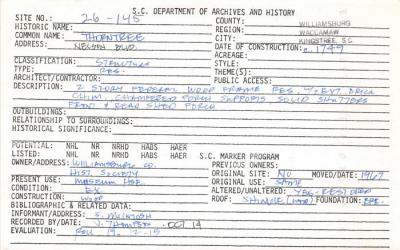 S.C. DEPARTMENT OF ARCHIVES AND HISTORY
SITE NO.: 26-145 COUNTY: WILLIAMSBURG
HISTORIC NAME: REGION: WACCAMAW
COMMON NAME: THORNTREE CITY: KINGSTREE S.C.
ADDRESS: NELSON BLVD. DATE OF CONSTRUCTION: c. 1749
ACREAGE:
CLASSIFICATION: STRUCTURE STYLE:
TYPE: RES. THEME(S):
ARCHITECT/CONTRACTOR: PUBLIC ACCESS:
DESCRIPTION: 2 STORY FEDERAL WOOD FRAME RES. W/EXT. BRICK
CHIM., CHAMFERED PORCH SUPPORTS SOLID SHUTTERS
FRONT & REAR SHED PORCH
OUTBUILDINGS:
RELATIONSHIP TO SURROUNDINGS:
HISTORICAL SIGNIFICANCE:
POTENTIAL: NHL NR NRHD HABS HAER
LISTED: NHL NR NRHD HABS HAER S.C. MARKER PROGRAM
OWNER/ADDRESS: WILLIAMSBURG CO. PREVIOUS OWNERS:
HIST. SOCIETY ORIGINAL SITE: NO MOVED/DATE: 1967
PRESENT USE: MUSEUM HSE. ORIGINAL USE: SAME
CONDITION: EX ALTERED/UNALTERED: YES-RESTORED
CONSTRUCTION: WOOD ROOF: SHINGLE FOUNDATION: BRK.
BIBLIOGRAPHIC & RELATED DATA:
INFORMANT/ADDRESS: S. MCINTOSH
RECORDED BY/DATE: J. THOMPSON OCT 14
EVALUATION: